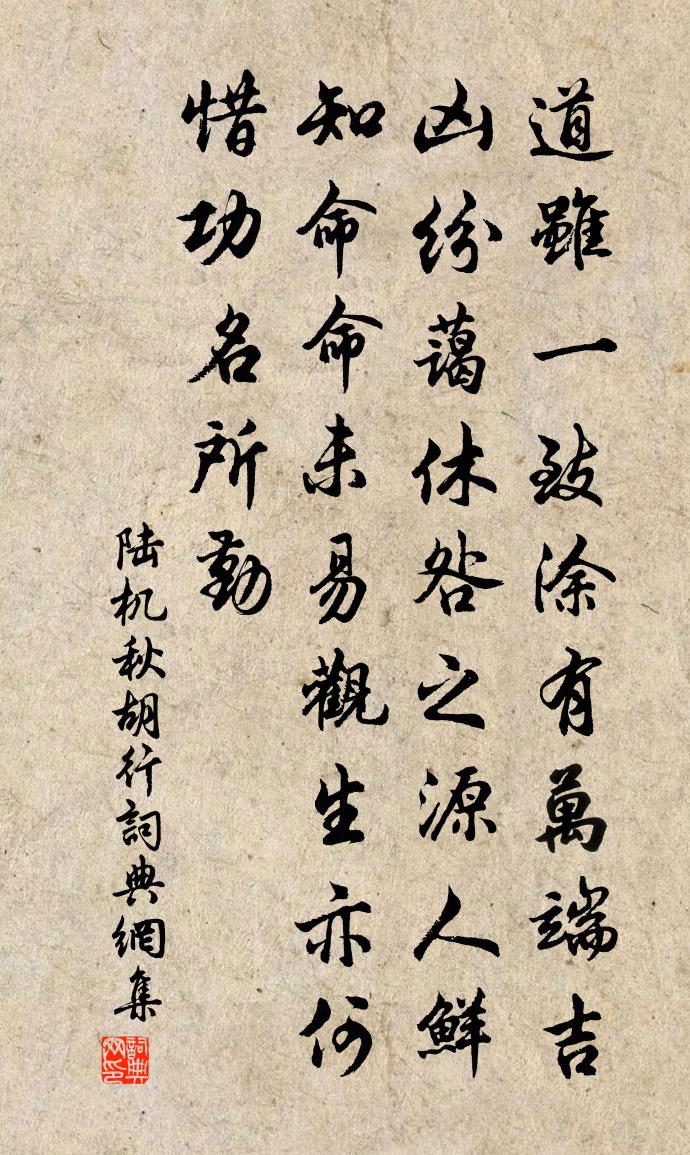 道雖一致涂有萬端吉
凶紛藹休咎之源人鮮
知命命未易觀生亦何
惜功名所勤
陆机秋胡行詞典網集
詞典网印